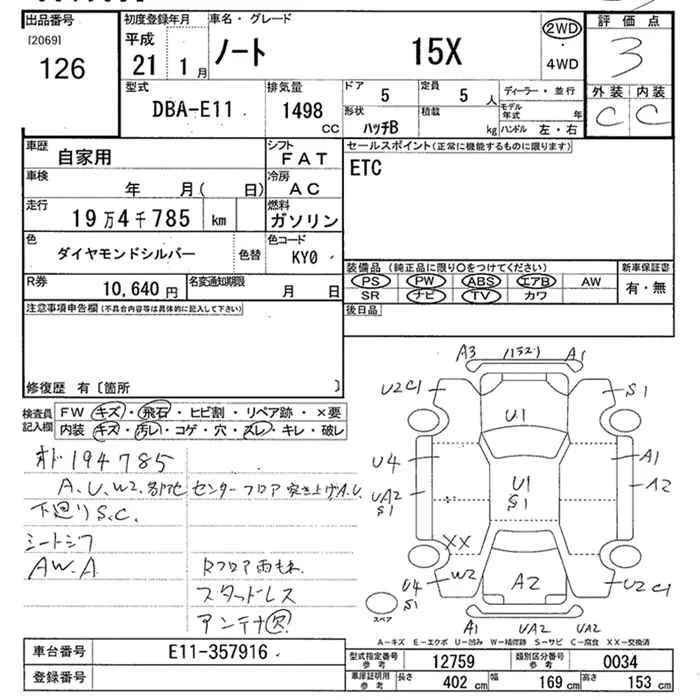 出品番号 初度登録年月 車名・グレード 評価点
[2069] 126
平成 21 1月
ノート 15X
2WD・4WD
3
型式 DBA-E11
排気量 1498 CC
ドア 5 定員 5人
形状 ハッチB 積載 kg
ディーラー・並行
モデル年式 年
ハンドル 左・右
外装 内装
C C
車歴 自家用
シフト FAT
セールスポイント(正常に機能するものに限ります)
ETC
車検 年 月( 日)
冷房 AC
走行 19万4千785 km
燃料 ガソリン
色 ダイヤモンドシルバー 色替
色コード KY0
R券 10,640円
名変通知期限 月 日
装備品(純正品に限り○をつけてください) 新車保証書
PS PW ABS エアB AW 有・無
SR ナビ TV カワ
注意事項申告欄(不具合内容等は具体的に記入して下さい)
後日品
修復歴 有〔箇所 〕
検査員記入欄
FW キズ・飛石・ヒビ割・リペア跡・×要
内装 キズ・汚レ・コゲ・穴・スレ・キレ・破レ
オド194785
A.U.W2.各所セ センターフロア突き上げA.U.
下廻りS.C.
シートシワ
AW.A Rフロア雨もれ
スタッドレス
アンテナ欠
A3 (152) A1
U2 C1 S1
U1
U4 A1
UA2 S1 U1 S1 A2
XX
W2
U4 S1 A2 U2 C1
スペア
A1 UA2 UA2
A-キズ E-エクボ U-凹み W-補修跡 S-サビ C-腐食 XX-交換済
車台番号 E11-357916
登録番号
型式指定番号 参考 12759 類別区分番号 参考 0034
車庫証明用 参考 長さ 402cm 幅 169cm 高さ 153cm